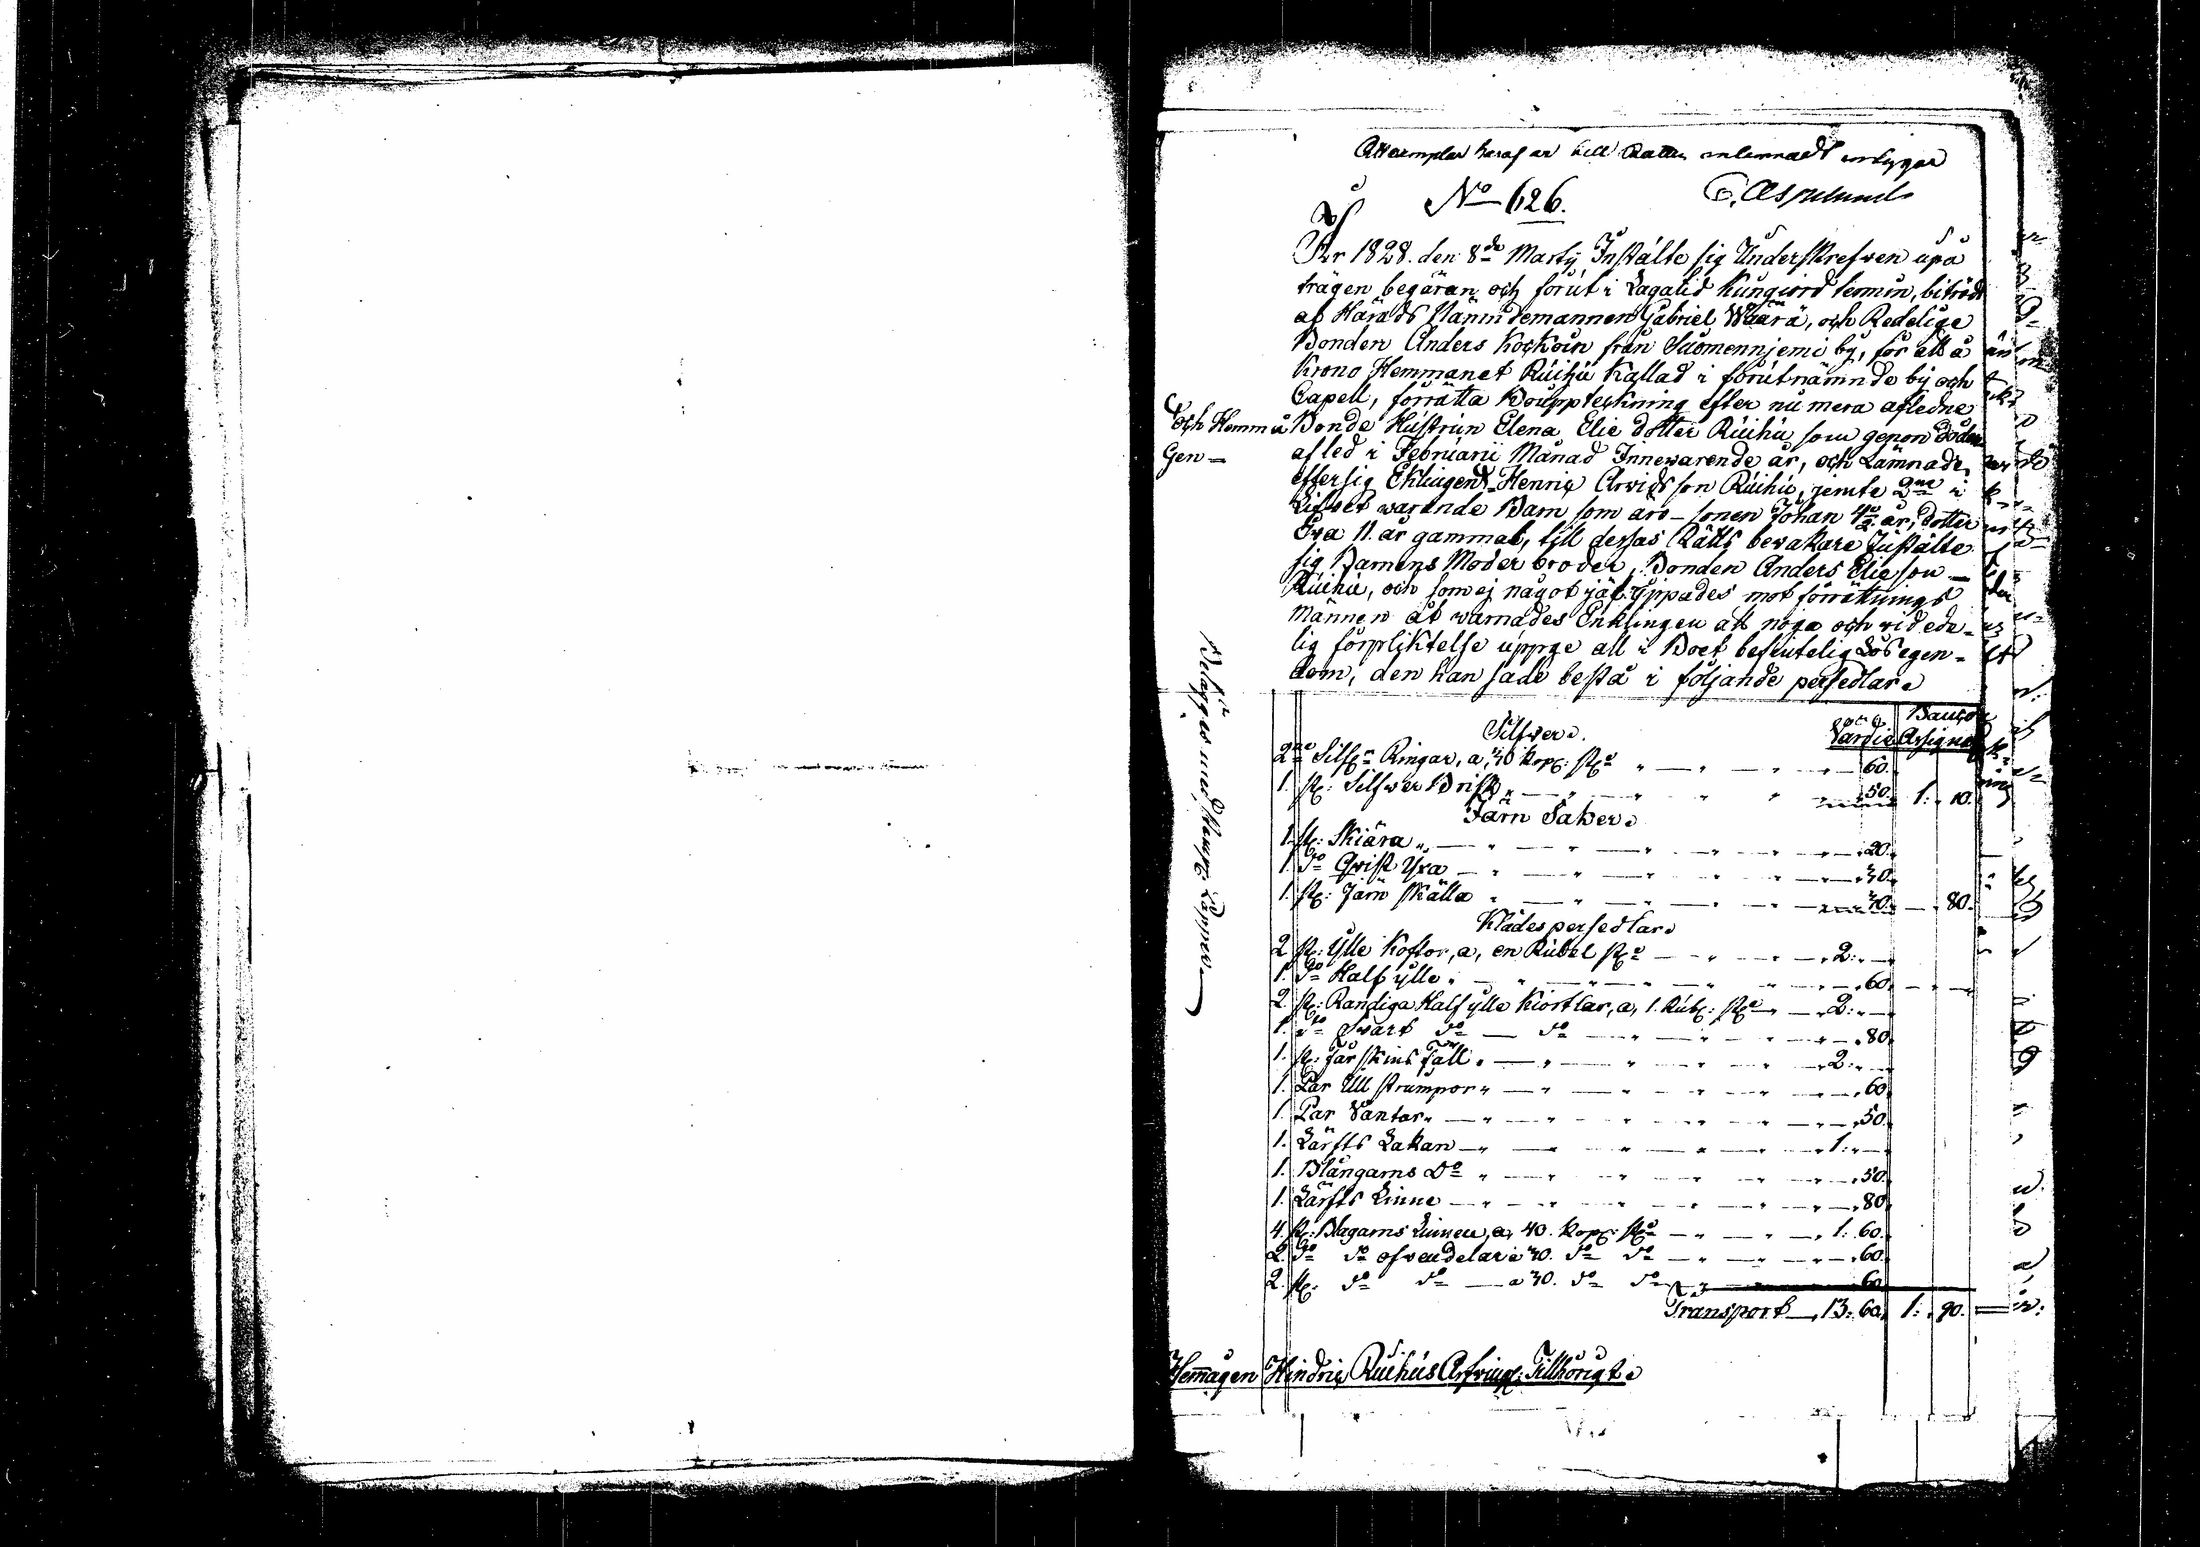 Ett exemplar häraf är till Rätten inlemnadt intygar
No 626.
C. Asplund
År 1828. den 8de Martij Instälte sig Underskrefwen upå
trägen begäran och förut i Lagatid kungiord termin, biträdt
af Härads Nämndemannen Gabriel Wäärä, och Redelige
Bonden Anders Kockoin från Suomennjemi by, för att å
Krono Hemmanet Ruihu kallad i förutnämnde by och
Capell, förrätta Bouppteckning efter nu mera afledne
Bonde Hustrun Elena Elie dotter Ruihu som genom döden
och Hemmå
Gen
afled i Februarii Månad Innewarende år, och Lämnade
efter sig Enklingen Henric Arvidsson Ruihu, jemte 2ne i
Lifvet warande Barn som äro sonen Johan 4½ år, dotter
Eva 11. år gammal, till dessas Rätts bevakare Instälte
sig Barnens Moder broder, Bonden Anders Elieson
Ruihu, och som ej något jäf yppades mot förrättnings
männen åt warnades Enklingen att noga och vid ede-
lig förpliktelse uppge all i Boet befintelig Lös egen-
dom, den han sade bestå i följande persedlar.
Belägges med Stempl: Papper
Silfver. Värdie Assigna
2ne Silfr Ringar, a, 30 kop: st: 60.
1. st: Silfver Brisk 50. 1: 10.
Järn Saker.
1. st: Skiära 20.
1. do Qvist Yxa 30.
1. st: Järn skälla 30. 80.
Klädes persedlar.
2 st: Ylle Koftor, a, en Rubel st: 2:
1. do Half ylle 60.
2 st: Randiga Half ylle Kiortlar, a, 1. Rub: st: 2:
1. do Svart do do 80.
1. st: Får skins Fäll 2:
1. Par Ull strumpor 60.
1. Par Vantar 50.
1. Lärfts Lakan 1:
1. Blångarns do 50.
1. Lärfts Linne 80.
4. st: Blagarns Linnen, a, 40. kop: st: 1: 60.
2. do do ofvendelar a 30. do do 60.
2. st: do do a 30. do do 60
Transport 13: 60. 1: 90.
Hemmågen Hindric Ruihus Arfving: Tillhörigt.